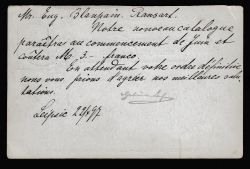 Mr. Eug. Blanpain. Ransart.
Notre nouveau catalogue
paraîtra au commencement de Juin et
coûtera M 3.- franco.
En attendant votre ordre définitive
nous vous prions d'agréer nos meilleures salu-
tations.
Leipsic 22/5 97